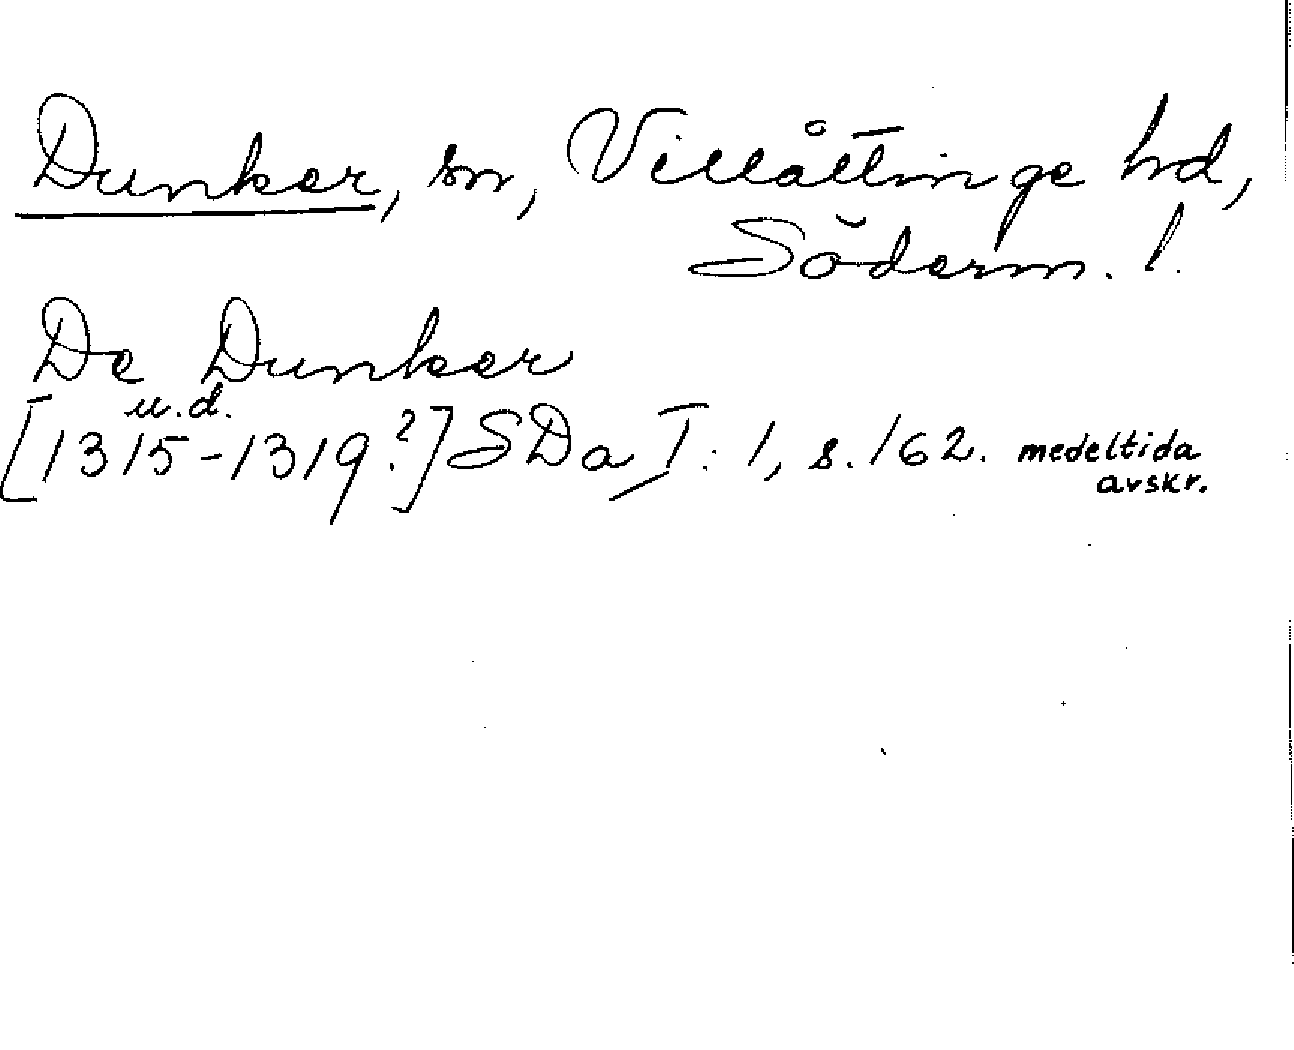 Dunker, sn, Villåttinge hd,
Söderm. l.
De Dunker
u.d.
[1315-1319?] SDa I: 1, s. 162. medeltida
avskr.